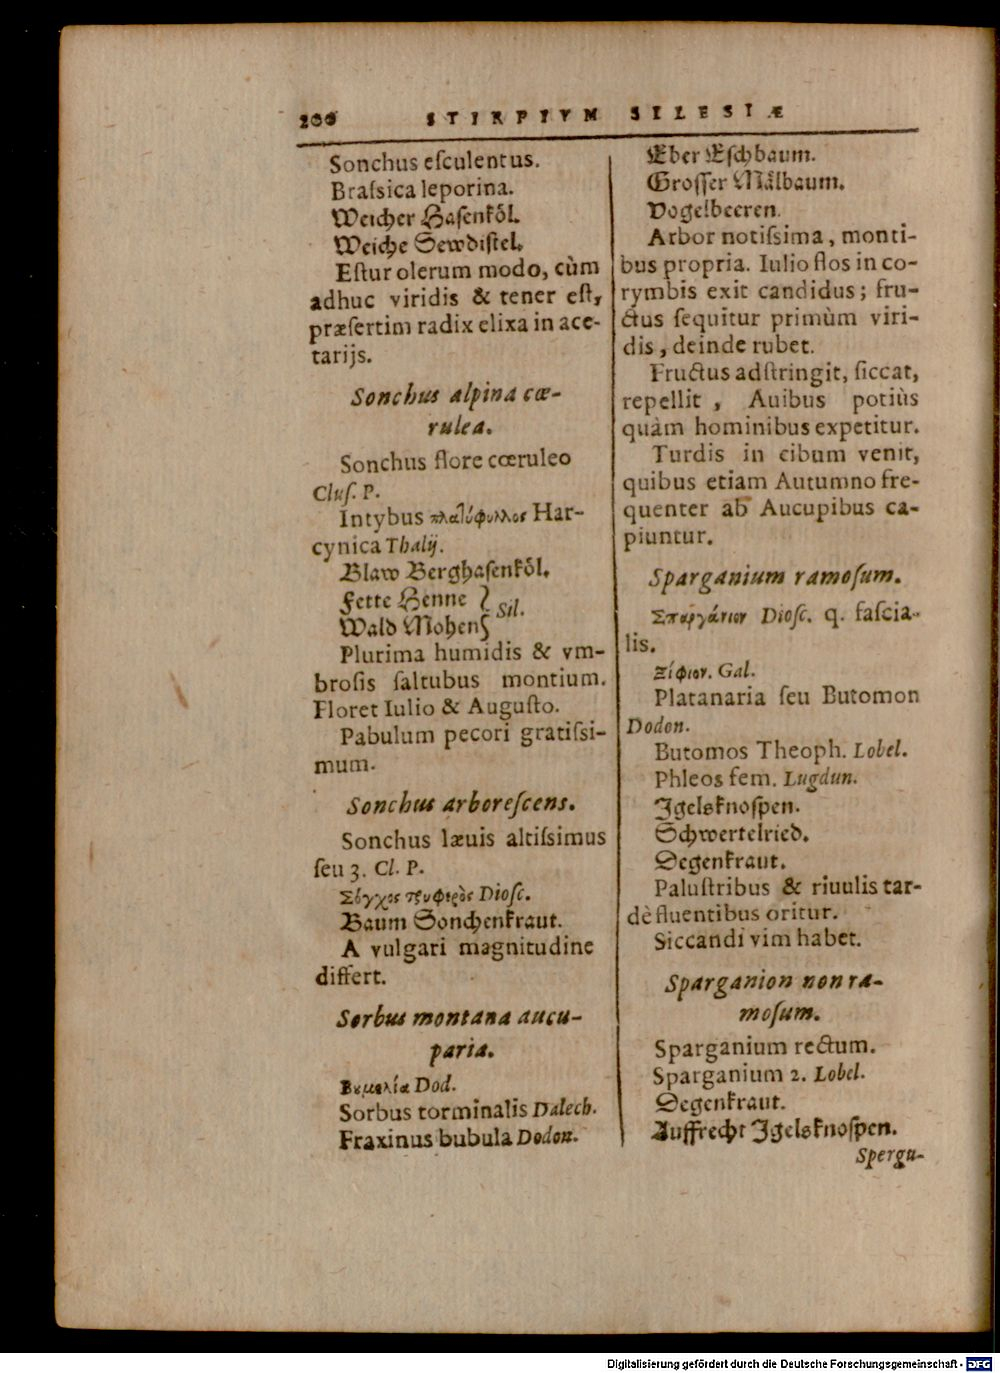 200 STIRPIVM SILESIÆ
Sonchus eſculentus.
Braſsica leporina.
Weicher Haſenkoͤl.
Weiche Sewdiſtel.
Eſtur olerum modo, cùm
adhuc viridis & tener eſt,
præſertim radix elixa in ace-
tarijs.
Sonchus alpina cœ-
rulea.
Sonchus flore cœruleo
Cluſ. P.
Intybus πλατύφυλλος Har-
cynica Thalij.
Blaw Berghaſenkoͤl.
Fette Henne
Wald Mohen } Sil.
Plurima humidis & vm-
broſis ſaltubus montium.
Floret Iulio & Auguſto.
Pabulum pecori gratiſsi-
mum.
Sonchus arboreſcens.
Sonchus læuis altiſsimus
ſeu 3. Cl. P.
Σόγχος τρυφερὸς Dioſc.
Baum Sonchenkraut.
A vulgari magnitudine
differt.
Sorbus montana aucu-
paria.
Βυμελία Dod.
Sorbus torminalis Dalech.
Fraxinus bubula Dodon.
Eber Eſchbaum.
Groſſer Maͤlbaum.
Vogelbeeren.
Arbor notiſsima, monti-
bus propria. Iulio flos in co-
rymbis exit candidus; fru-
ctus ſequitur primùm viri-
dis, deinde rubet.
Fructus adſtringit, ſiccat,
repellit, Auibus potiùs
quàm hominibus expetitur.
Turdis in cibum venit,
quibus etiam Autumno fre-
quenter ab Aucupibus ca-
piuntur.
Sparganium ramoſum.
Σπαργάνιον Dioſc. q. faſcia-
lis.
Ξίφιον. Gal.
Platanaria ſeu Butomon
Dodon.
Butomos Theoph. Lobel.
Phleos fem. Lugdun.
Igelsknoſpen.
Schwertelried.
Degenkraut.
Paluſtribus & riuulis tar-
dè fluentibus oritur.
Siccandi vim habet.
Sparganion non ra-
moſum.
Sparganium rectum.
Sparganium 2. Lobel.
Degenkraut.
Auffrecht Igelsknoſpen.
Spergu-
Digitalisierung gefördert durch die Deutsche Forschungsgemeinschaft - DFG